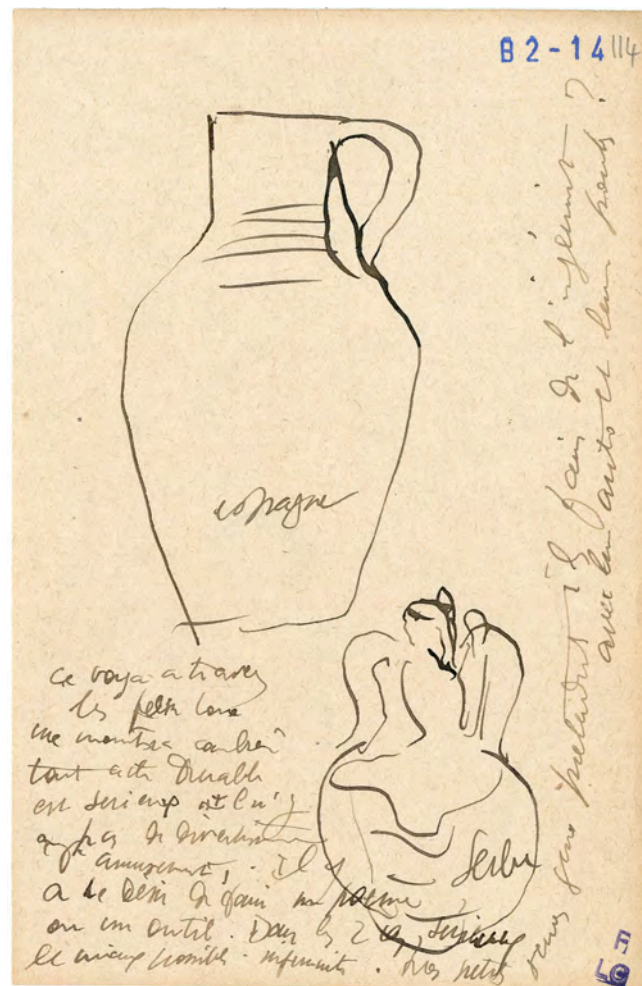 B2-14 114
espagne
Serbe
ce voya a travers
les
me montra combien
tout acte durable
est serieux et il n'y
a pas de divertissement
amusement, . Il y
a le desir de faire un poeme
ou un outil. Dans les 2 cas, serieux
le mieux possible. infiniment. Nos petits
pretendent ils faire de l'ingenuité ?
avec leurs autos et leurs ponts ?